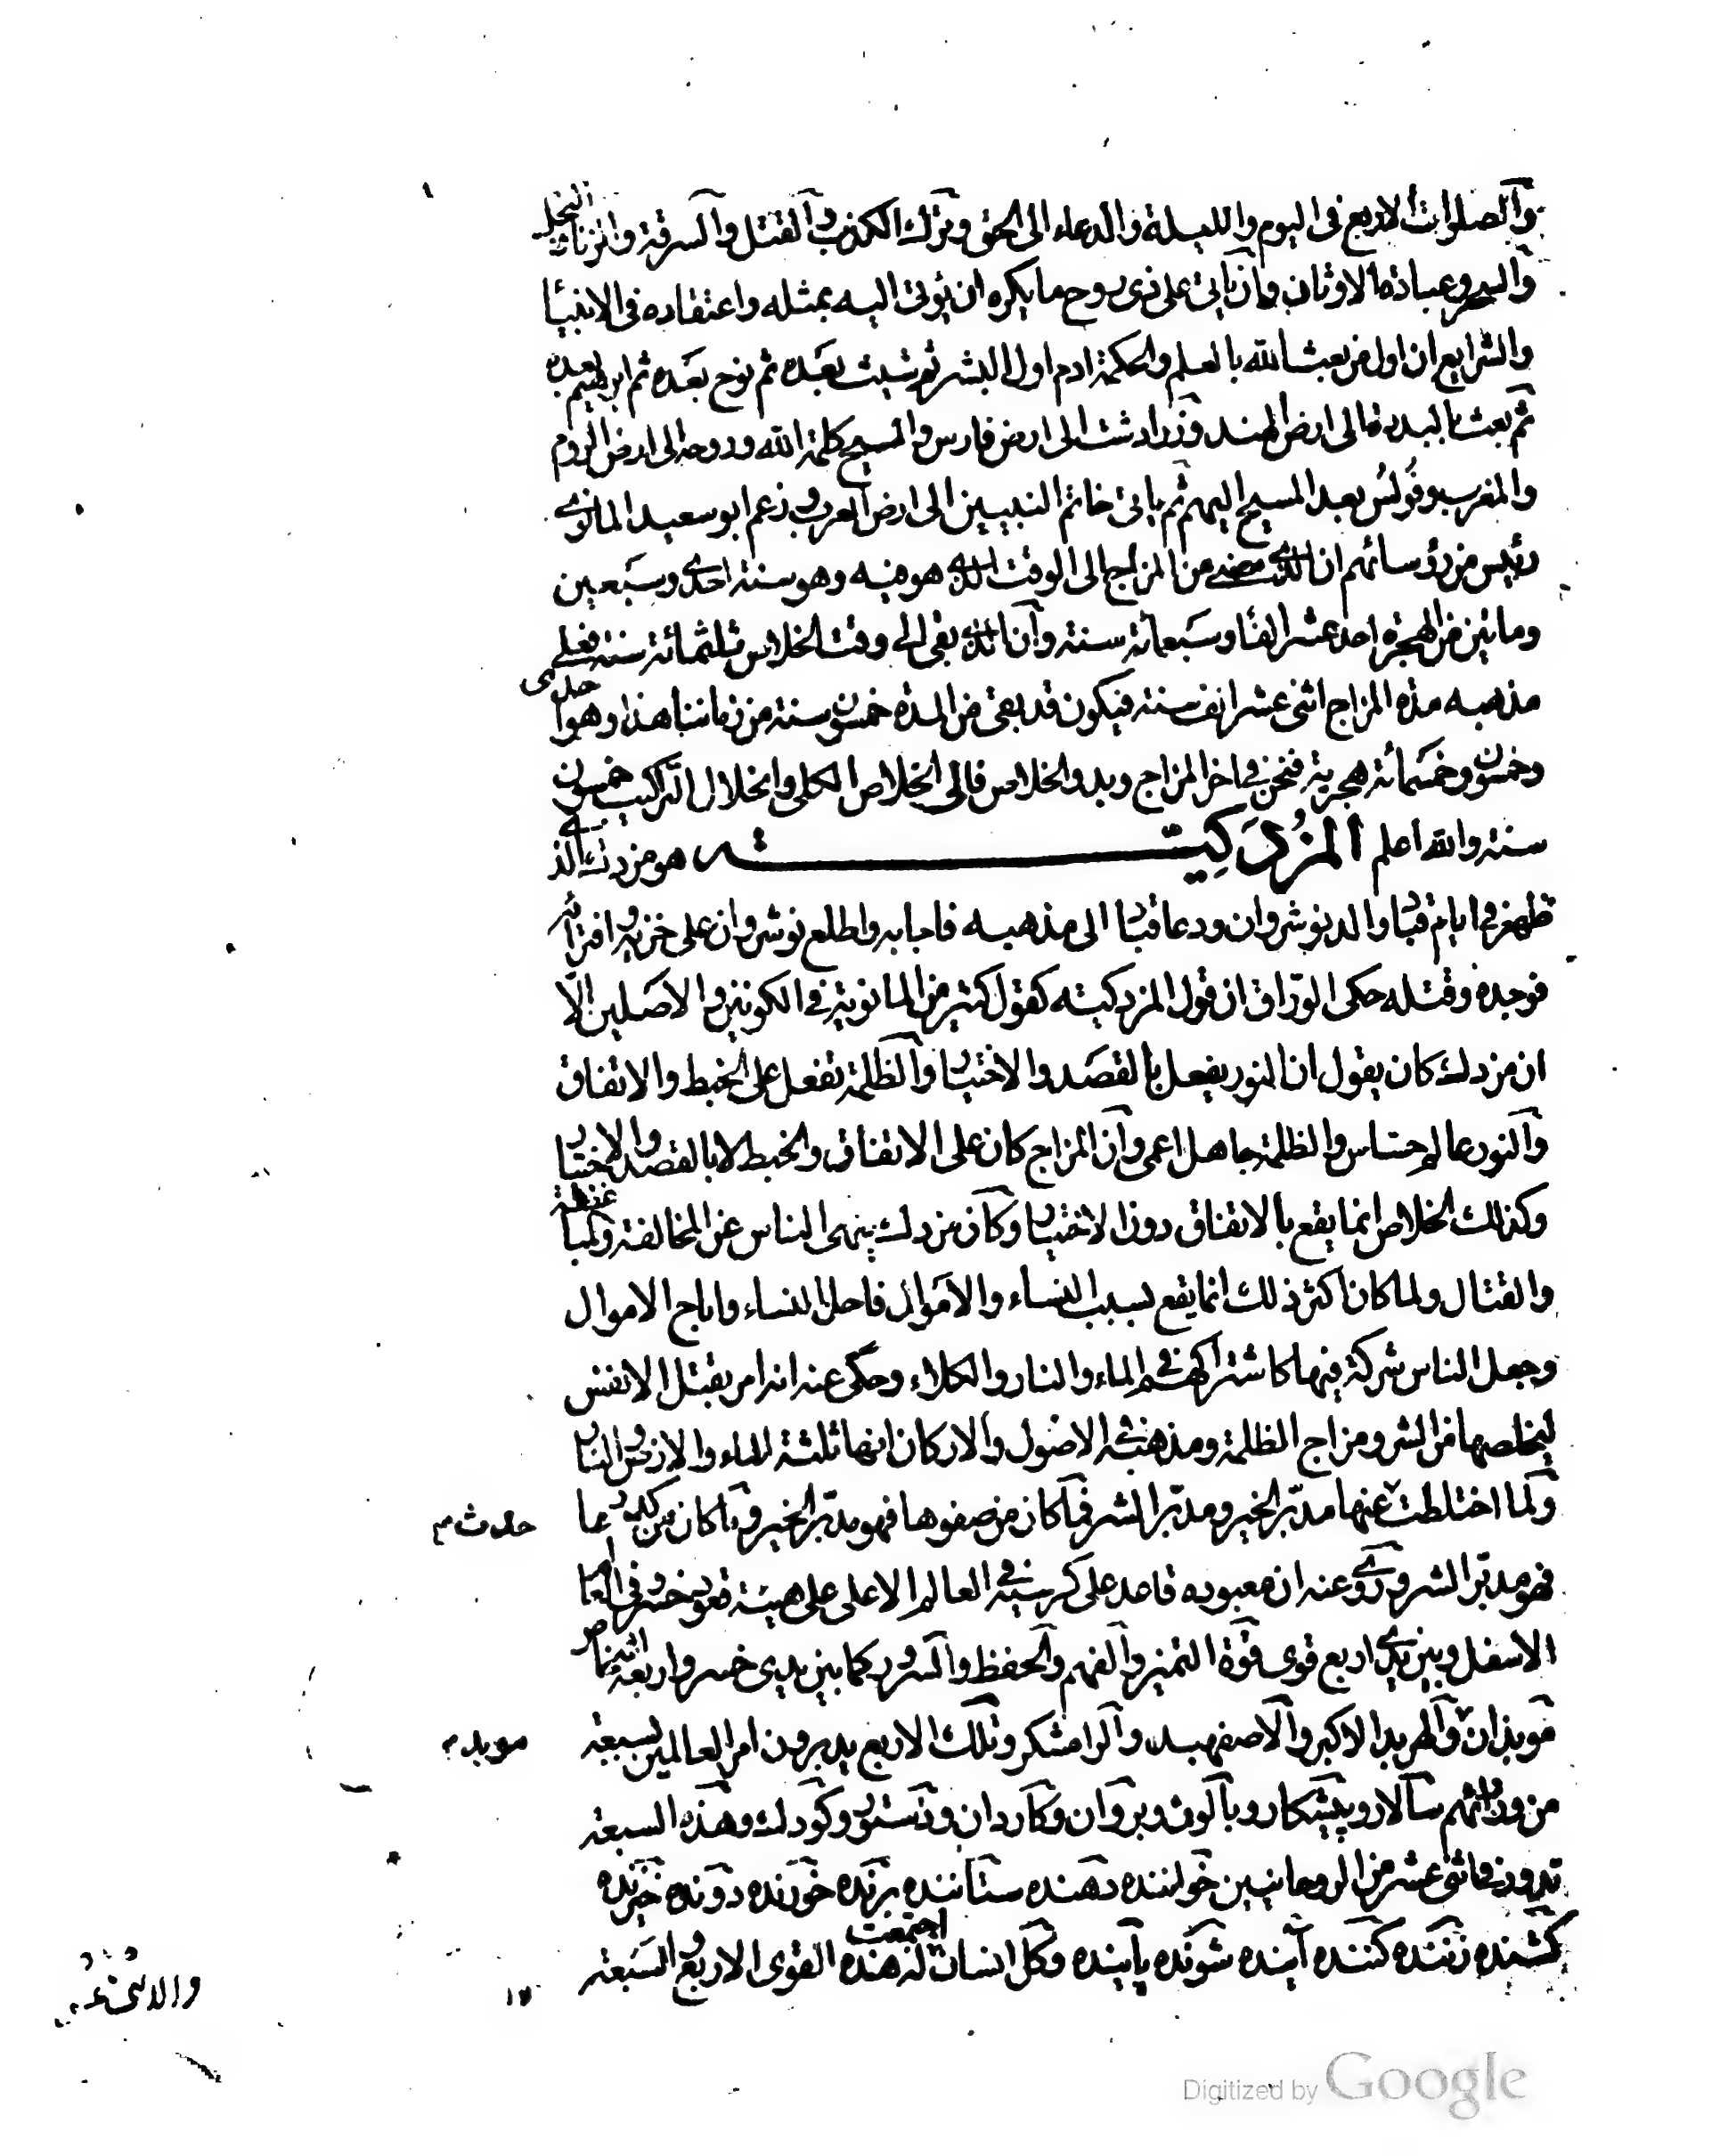 والصلوات الاربع فى اليوم والليلة والدعاء الى الحق وترك الكذب والقتل والسرقة والزنا والبخل
والسحر وعبادة الاوثان وان ياتى على ذى روح ما يكره ان يؤتى اليه بمثله واعتقاده فى الانبيا
والشرايع ان اول من بعث الله بالعلم والحكمة ادم اول البشر ثم شيث بعده ثم نوح بعده ثم ابرهيم بعده
ثم بعث بالبددة الى ارض الهند وزرادشت الى ارض فارس والمسيح كلمة الله وروحه الى ارض الروم
والمغرب وفولس بعد المسيح اليهم ثم ياتى خاتم النبيين الى ارض العرب وزعم ابو سعيد المانوى
رئيس من رؤسائهم ان الذى مضى من المزاج الى الوقت الذى هو فيه وهو سنة احدى وسبعين
ومائتين من الهجرة احد عشر الفا وسبعمائة سنة وان الذى بقى الى وقت الخلاص ثلثمائة سنة فعلى
مذهبه مدة المزاج اثنى عشر الف سنة فيكون قد بقى من المدة خمسون سنة من زماننا هذا وهو احدى
وخمسون وخمسمائة هجرية فنحن فى اخر المزاج وبدو الخلاص فالى الخلاص الكلى وانحلال التراكيب خمسون
سنة والله اعلم المزدكيته هو مزدك الذى
ظهر فى ايام قباد والد نوشروان ودعا قباد الى مذهبه فاجابه واطلع نوشروان على خزيه وافترائه
فوجده وقتله حكى الوراق ان قول المزدكيته كقول كثير من المانوية فى الكونين والاصلين الا
ان مزدك كان يقول ان النور يفعل بالقصد والاختيار والظلمة تفعل على الخبط والاتفاق
والنور عالم حساس والظلمة جاهل اعمى وان المزاج كان على الاتفاق والخبط لا بالقصد والاختيار
وكذلك الخلاص انما يقع بالاتفاق دون الاختيار وكان مزدك ينهى الناس عن المخالفة والمباغضة
والقتال ولما كان اكثر ذلك انما يقع بسبب النساء والاموال فاحل النساء واباح الاموال
وجعل الناس شركة فيها كاشتراكهم فى الماء والنار والكلاء وحكى عنه انه امر بقتل الانفس
ليخلصها من الشر ومزاج الظلمة ومذهبه فى الاصول والاركان انها ثلثة الماء والارض والنار
ولما اختلطت عنها مدبر الخير ومدبر الشر فما كان من صفوها فهو مدبر الخير وما كان من كدرها
حدث م
فهو مدبر الشر وروى عنه ان معبوده قاعد على كرسيه فى العالم الاعلى على هيئة قعود خسرو فى العالم
الاسفل وبين يديه اربع قوى قوة التميز والفهم والحفظ والسرور كما بين يدى خسرو اربعة اشخاص
موبذان والهربد الاكبر والاصفهبد والرامشكر وتلك الاربع يدبرون امر العالمين بسبعة
موبد م
من وزرائهم سالار وپيشكار وبالون وبروان وكاردان ودستور وكودك وهذه السبعة
تدور فى اثنى عشر من الروحانيين خواننده دهنده ستاننده برنده خورنده دونده خيزنده
كشنده زننده كننده آينده شونده پاينده وكل انسان اجتمعت له هذه القوى الاربع والسبعة
والاثنى عشر